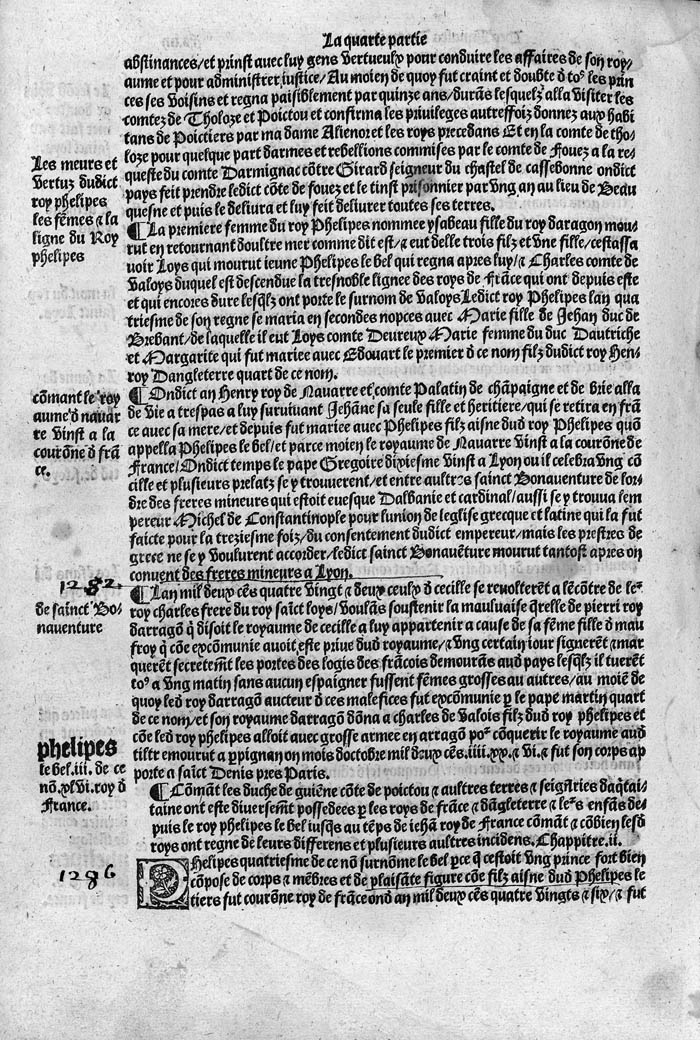 La quarte partie
abstinances/et prinst avec luy gens vertueulx pour conduire les affaires de son roy-
aume et pour administrer iustice/Au moien de quoy fut craint et doubte d̄ toꝰ les prin
ces ses voisins et regna paisiblement par quinze ans/durās lesquelz alla visiter les
comtez de Tholoze et Poictou et confirma les privileges autreffoiz donnez aux habi
tans de Poictiers par ma dame Alienor et les roys precedans Et en la comte de tho-
loze pour quelque part darmes et rebellions commises par le comte de Fouez a la re-
queste du comte Darmignac cōtre Girard seigneur du chastel de cassebonne ondict
pays feit prendre ledict cōte de fouez et le tinst prisonnier par vng an au lieu de Beau
quesne et puis le deliura et luy feit deliurer toutes ses terres.
Les meurs et
vertuz dudict
roy phelipes
les fēmes ⁊ la
ligne du Roy
phelipes
¶ La premiere femme du roy Phelipes nommee ysabeau fille du roy daragon mou-
rut en retournant doultre mer comme dit est/⁊ eut delle trois filz et vne fille/cestassa
uoir Loys qui mourut ieune Phelipes le bel qui regna apres luy/⁊ Charles comte de
Valoys duquel est descendue la tresnoble lignee des roys de frāce qui ont depuis este
et qui encores dure lesq̄lz ont porte le surnom de valoys Ledict roy Phelipes lan qua
triesme de son regne se maria en secondes nopces avec Marie fille de Jehan duc de
Brebant/de laquelle il eut Loys comte Deureux Marie femme du duc Dautriche
et Margarite qui fut mariee avec Edouart le premier d̄ ce nom filz dudict roy Hen-
roy Dangleterre quart de ce nom.
cōmant le roy
aume d̄ navar
re vinst a la
courōne d̄ frā
ce.
¶ Ondict an Henry roy de Nauarre et comte Palatin de chāpaigne et de brie alla
de vie a trespas a luy suruiuant Jehāne sa seule fille et heritiere/qui se retira en frā
ce avec sa mere/et depuis fut mariee avec Phelipes filz aisne dud̄ roy Phelipes quō
appella Phelipes le bel/et parce moien le royaume de Nauarre vinst a la courōne de
France/Ondict temps le pape Gregoire dixiesme vinst a Lyon ou il celebra vng cō
cille et plusieurs prelatz se y trouuerent/et entre aultres sainct Bonauenture de lor-
dre des freres mineurs qui estoit euesque Dalbanie et cardinal/aussi se y trouua lem
pereur Michel de Constantinople pour lunion de leglise grecque et latine qui la fut
faicte pour la treziesme foiz/du consentement dudict empereur/mais les prestres de
grece ne se y voulurent accorder/ledict sainct Bonauēture mourut tantost apres on
conuent des freres mineurs a Lyon.
1282.
de sainct Bo-
nauenture
¶ Lan mil deux cēs quatre vingt ⁊ deux ceulx d̄ cecille se reuolterēt a lēcōtre de leꝰ
roy charles frere du roy saīct loys/voulās soustenir la mauluaise q̄relle de pierri roy
darragō q̄ disoit le royaume de cecille a luy appartenir a cause de sa fēme fille d̄ mau
froy q̄ cōe excōmunie auoit este priue dud̄ royaume/⁊ vng certain iour signerēt ⁊ mar
querēt secretemīt les portes des logis des frācois demourās aud̄ pays lesq̄lz il tuerēt
toꝰ a vng matin sans aucun espaigner fussent fēmes grosses au autres/au moiē de
quoy led̄ roy darragō aucteur d̄ ces malefices fut excōmunie p̄ le pape martin quart
de ce nom/et son royaume darragō dōna a charles de valois filz dud̄ roy phelipes et
cōe led̄ roy phelipes alloit avec grosse armee en arragō poꝰ cōquerir le royaume aud̄
tiltr emourut a p̄pignan on mois doctobre mil deux cēs.iiii.xx.⁊ vi.⁊ fut son corps ap
porte a saīct Denis pres Paris.
phelipes
le bel.iii. de ce
nō.xlvi.roy d̄
France.
¶ Cōmāt les duche de guiēne cōte de poictou ⁊ aultres terres ⁊ seigñries daq̄tai-
taine ont este diuersemt̄ possedees p̄ les roys de frāce ⁊ dāgleterre ⁊ leꝰs enfās de-
puis le roy phelipes le bel iusq̄s au tēps de iehā roy de France cōmāt ⁊ cōbien lesd̄
roys ont regne de leurs differens et plusieurs aultres incidens. Chappitre.ii.
1286
Phelipes quatriesme de ce nō surnōme le bel p̄ce q̄ cestoit vng prince fort bien
cōpose de corps ⁊ mēbres et de plaisāte figure cōe filz aisne dud̄ Phelipes le
tiers fut courōne roy de frāce ond̄ an mil deux cēs quatre vingts ⁊ six/⁊ fut